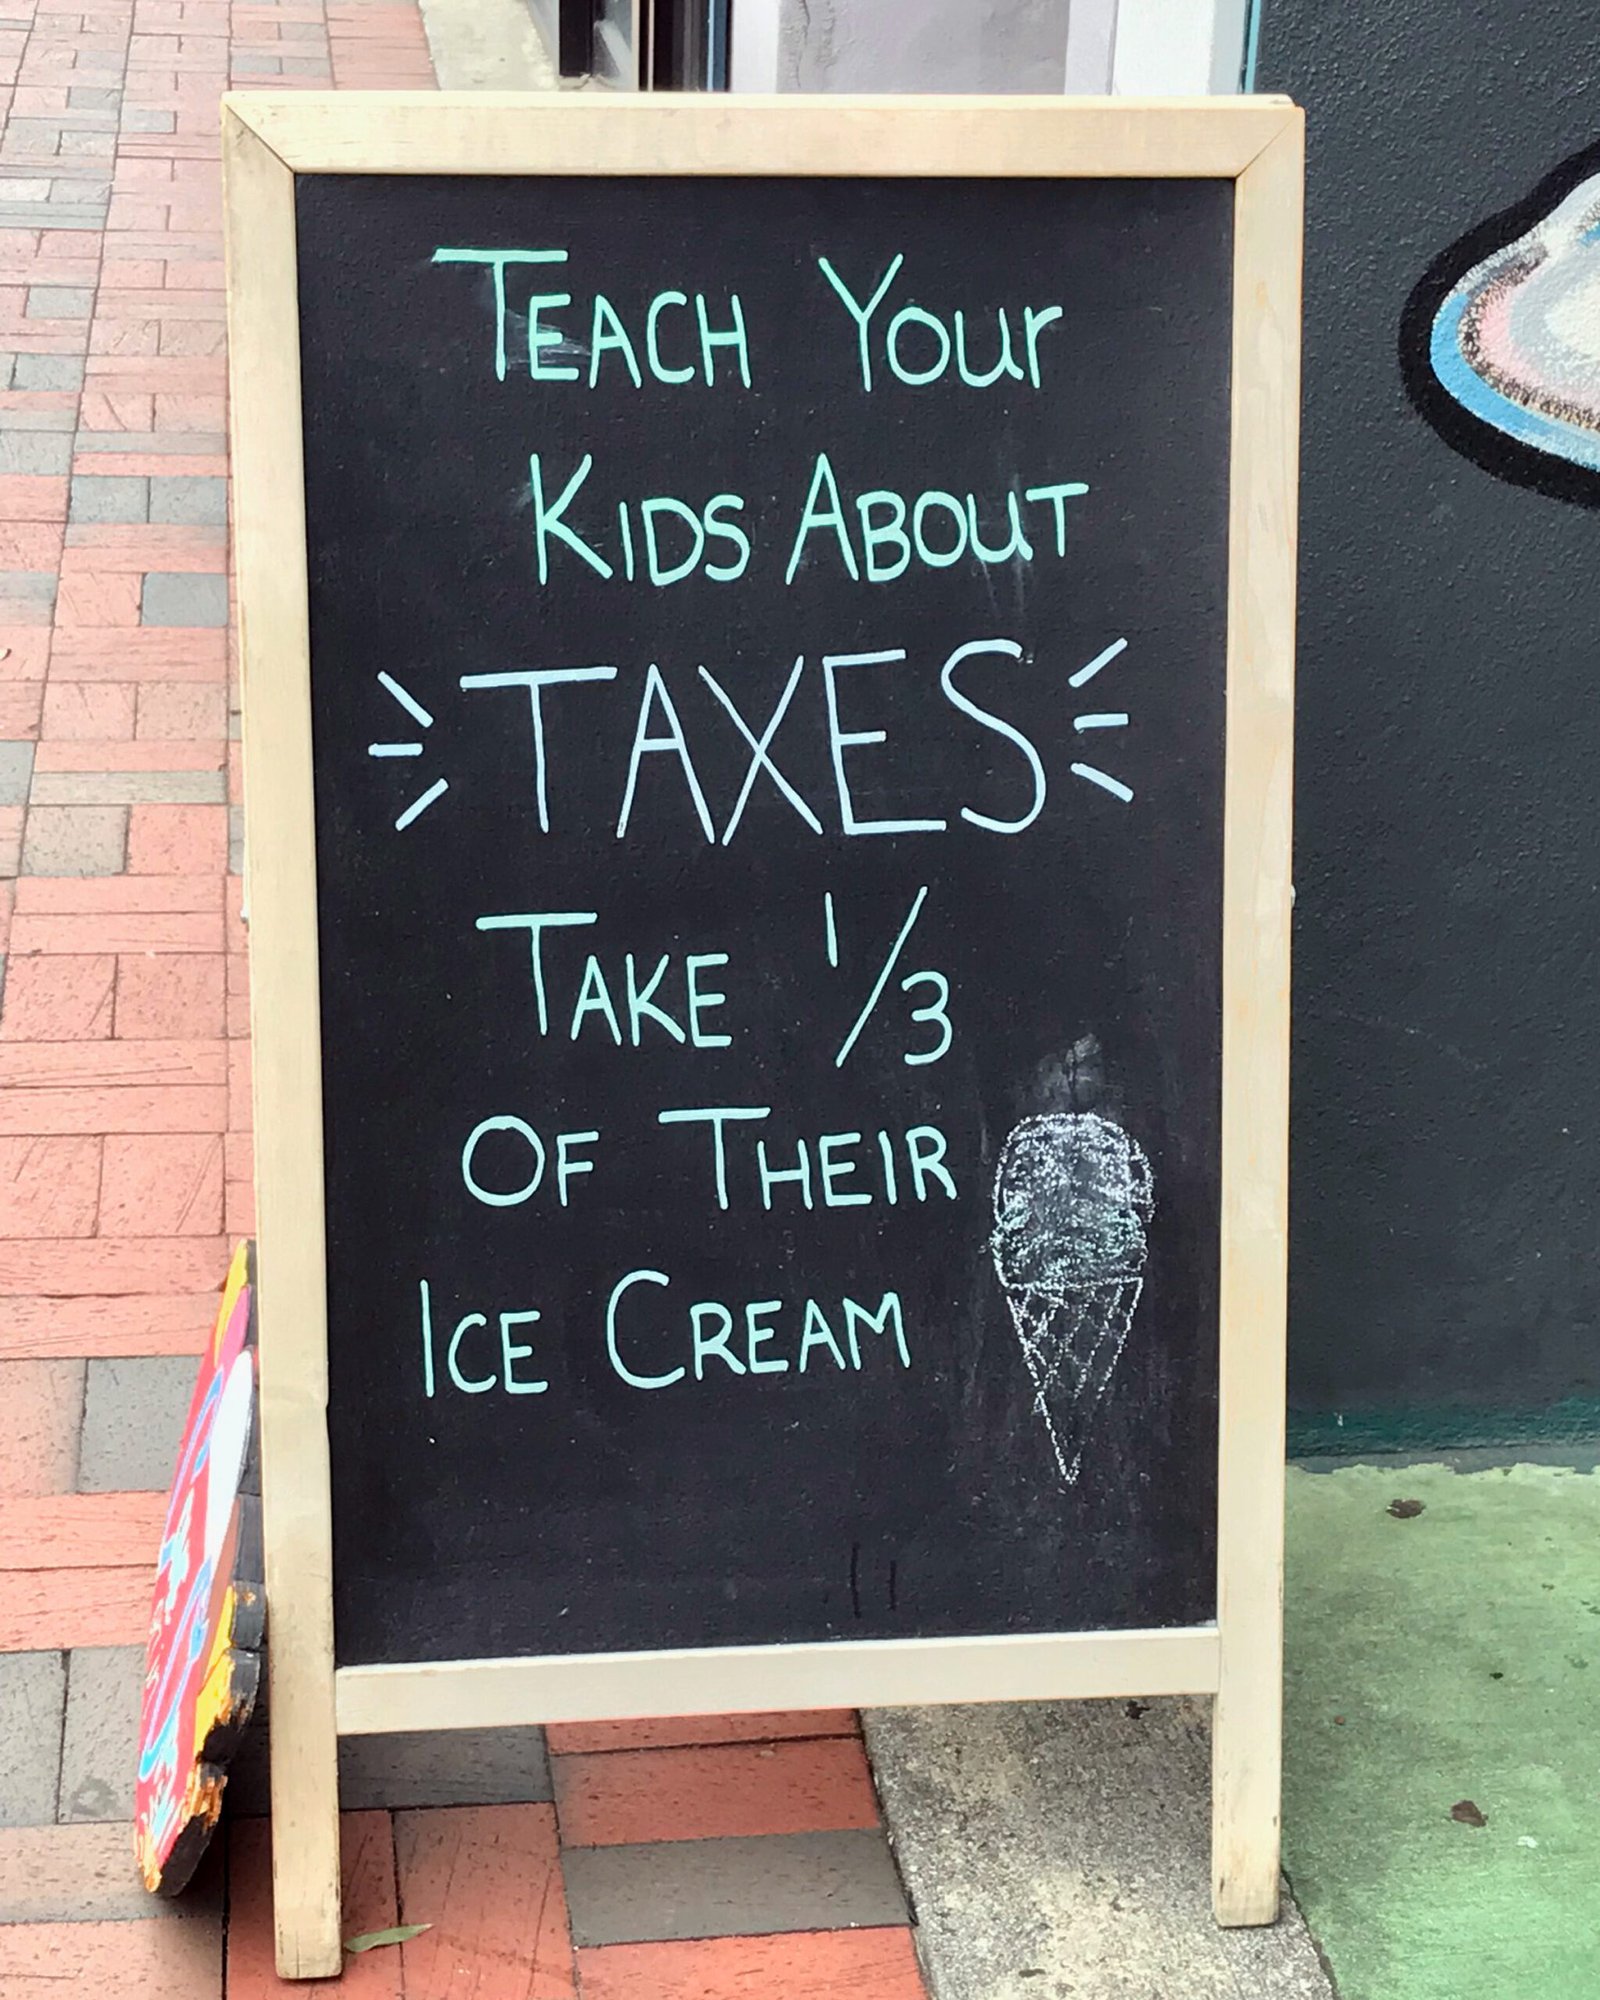 TEACH YOur
KIDS ABOuT
TAXES
TAKE 1/3
OF THEIR
ICE CREAM